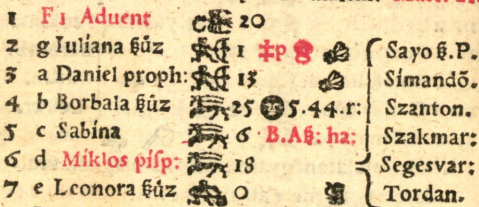 1 F 1 Aduent 20
2 g Iuliana ßûz 1 ‡p Sayo ß.P.
3 a Daniel proph: 13 Simandõ.
4 b Borbala ßûz 25 5.44.r: Szanton.
5 c Sabina 6 B.Aß: ha: Szakmar:
6 d Miklos pisp: 18 Segesvar:
7 e Leonora ßûz 0 Tordan.